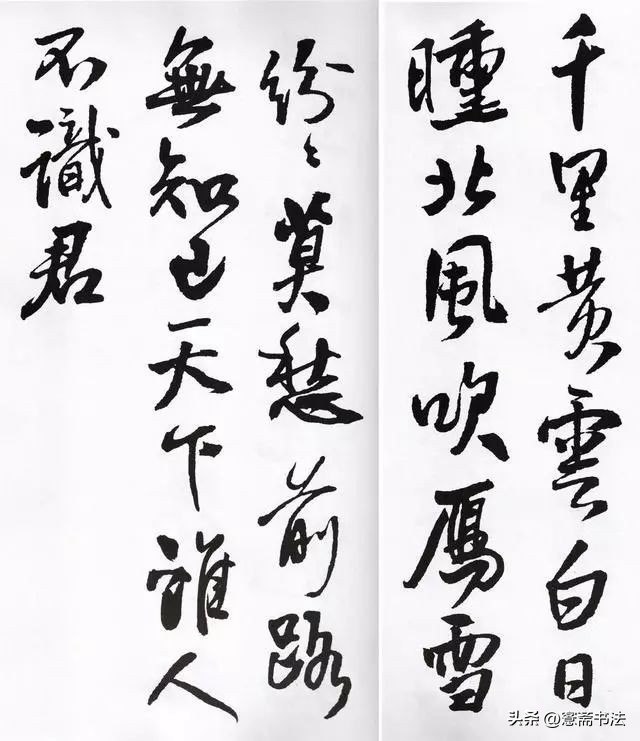 千里黄雲白日
曛北風吹雁雪
紛〻莫愁前路
無知已天下誰人
不識君
头条@憲斋书法